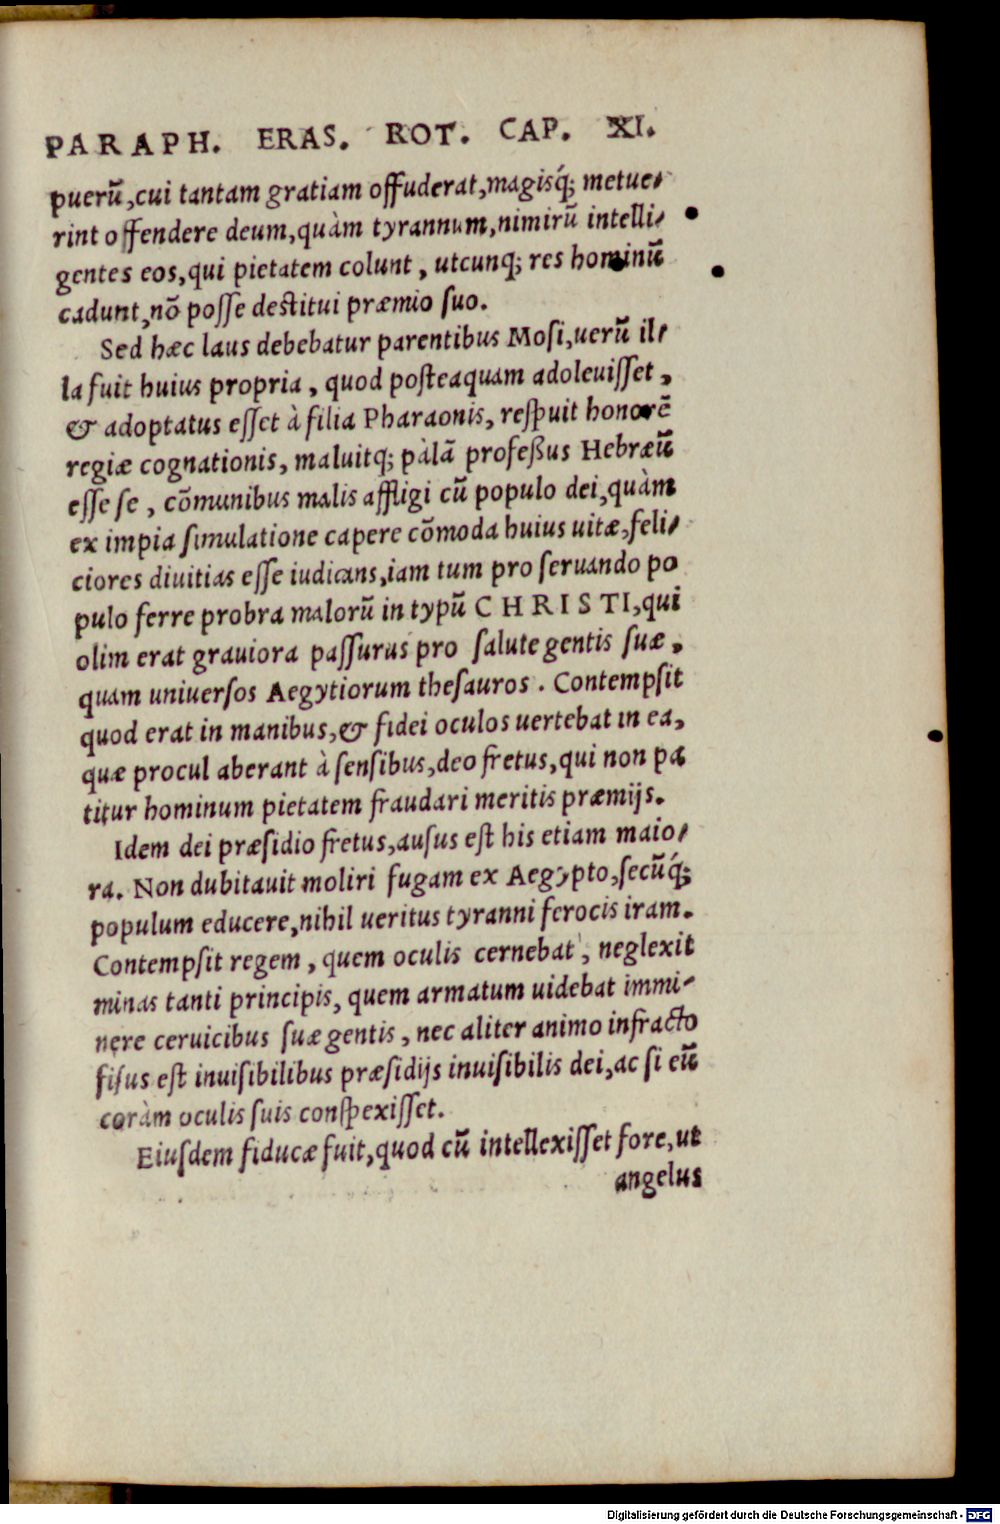 PARAPH. ERAS. ROT. CAP. XI.
puerū, cui tantam gratiam offuderat, magisq́; metue-
rint offendere deum, quàm tyrannum, nimirū intelli-
gentes eos, qui pietatem colunt, utcunq; res hominū
cadunt, nō posse destitui præmio suo.
Sed hæc laus debebatur parentibus Mosi, uerū il-
la fuit huius propria, quod posteaquam adoleuisset,
& adoptatus esset à filia Pharaonis, respuit honorē
regiæ cognationis, maluitq; pàlā profeßus Hebræū
esse se, cōmunibus malis affligi cū populo dei, quàm
ex impia simulatione capere cōmoda huius uitæ, feli-
ciores diuitias esse iudicans, iam tum pro seruando po
pulo ferre probra malorū in typū CHRISTI, qui
olim erat grauiora passurus pro salute gentis suæ,
quam uniuersos Aegytiorum thesauros. Contempsit
quod erat in manibus, & fidei oculos uertebat in ea,
quæ procul aberant à sensibus, deo fretus, qui non pa
titur hominum pietatem fraudari meritis præmijs.
Idem dei præsidio fretus, ausus est his etiam maio-
ra. Non dubitauit moliri fugam ex Aegypto, secūq́;
populum educere, nihil ueritus tyranni ferocis iram.
Contempsit regem, quem oculis cernebat, neglexit
minas tanti principis, quem armatum uidebat immi-
nere ceruicibus suæ gentis, nec aliter animo infracto
fisus est inuisibilibus præsidijs inuisibilis dei, ac si eū
coràm oculis suis conspexisset.
Eiusdem fiducæ fuit, quod cū intellexisset fore, ut
angelus
Digitalisierung gefördert durch die Deutsche Forschungsgemeinschaft - DFG